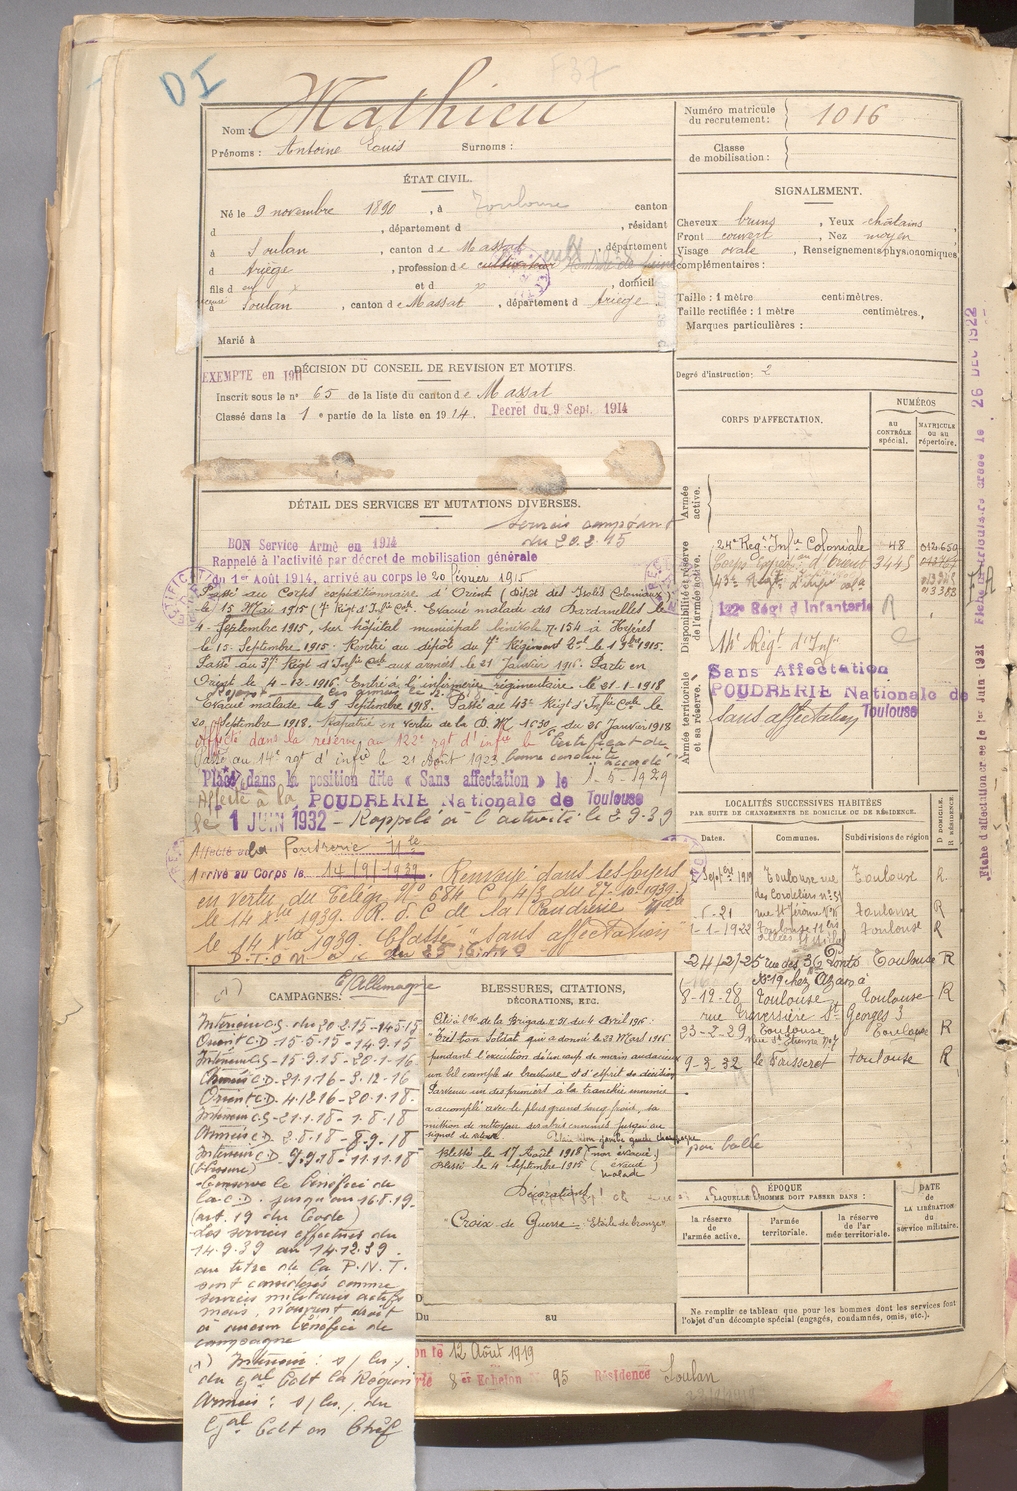 DI
F37
Nom : Mathieu
Prénoms : Antoine Louis Surnoms :
Numéro matricule du recrutement : 1016
Classe de mobilisation :
ÉTAT CIVIL.
Né le 9 novembre 1890, à Toulouse canton
d , département d , résidant
à Soulan , canton de Massat , département
d Ariège , profession de cultivateur
fils d et d , domicilié
à Soulan , canton de Massat , département d Ariège
Marié à
SIGNALEMENT.
Cheveux bruns , Yeux châtains ,
Front couvert , Nez moyen ,
Visage ovale , Renseignements physionomiques
complémentaires :
Taille : 1 mètre centimètres.
Taille rectifiée : 1 mètre centimètres.,
Marques particulières :
Degré d'instruction : 2
EXEMPTÉ en 1911
DÉCISION DU CONSEIL DE REVISION ET MOTIFS.
Inscrit sous le n° 65 de la liste du canton de Massat
Classé dans la 1e partie de la liste en 1914. Décret du 9 Sept. 1914
DÉTAIL DES SERVICES ET MUTATIONS DIVERSES.
Services comptant
du 20.2.15
BON Service Armé en 1914
Rappelé à l'activité par décret de mobilisation générale
du 1er Août 1914, arrivé au corps le 20 février 1915
Passé au Corps expéditionnaire d'Orient (Dépôt des Isolés Coloniaux)
le 15 Mai 1915 (7e Régt d'Infie Cale. Evacué malade des Dardanelles le
4 Septembre 1915, sur hôpital municipal bénévole n° 154 à Hyères
le 15 Septembre 1915. Rentré au dépôt du 7e Régiment Cal le 1 9bre 1915.
Passé au 37e Régt d'Infie Cale aux armées le 21 Janvier 1916. Parti en
Orient le 4-12-1916. Entré à l'infirmerie régimentaire le 21-1-1918
Evacué malade le 9 Septembre 1918. Passé au 43e Régt d'Infie Cale le
20 Septembre 1918. Rapatrié en vertu de la D.M. 1530 du 26 Janvier 1918
Affecté dans la réserve au 122e rgt d'infie le Certificat de
Passé au 14e rgt d'infie le 21 Août 1923 bonne conduite accordé
1-5-1929
Placé dans la position dite « Sans affectation » le
Affecté à la POUDRERIE Nationale de Toulouse
le 1 JUIN 1932 - Rappelé à l'activité le 2-9-39
Affecté à la Poudrerie Nle
Arrivé au Corps le 14/9/1939. Renvoyé dans ses foyers
en vertu du Télég. N° 684 C 4/3 du 27-10-1939.
le 14 Xbre 1939. R.d.C de la Poudrerie Nale
le 14 Xbre 1939. Classé "sans affectation"
CORPS D'AFFECTATION.
NUMÉROS
AU CONTRÔLE spécial.
MATRICULE ou au répertoire.
Armée active.
Disponibilité et réserve de l'armée active.
Armée territoriale et sa réserve.
24e Régt Infie Coloniale 48 012.650
Corps Expéd. d'Orient 3445
43e Régt d'Infie Cale
122e Régt d'Infanterie R
14e Régt d'Infie
Sans Affectation
POUDRERIE Nationale de Toulouse
sans affectation
Fiche d'affectation créée le 1er Juin 1921 Fiche matriculaire créée le 26 DEC 1922
LOCALITÉS SUCCESSIVES HABITÉES
PAR SUITE DE CHANGEMENTS DE DOMICILE OU DE RÉSIDENCE.
Dates. Communes. Subdivisions de région D. DOMICILE. R. RÉSIDENCE.
Septbre 1919 Toulouse rue des Cordeliers n° 31 Toulouse R
-21 rue St Jérôme Toulouse R
1-1-1922 Toulouse Toulouse R
24/2/25 rue des 36 Ponts Toulouse R
N° 19 chez Azaro à
8-12-28 Toulouse Toulouse R
rue Traversière St Georges 3
23-2-29 Toulouse Toulouse R
rue St Etienne n° 7
9-3-32 le Fousseret Toulouse R
(1) CAMPAGNES. C/Allemagne
Intérieur C.S. du 20.2.15-14.5.15
Orient C.D. 15.5.15-14.9.15
Intérieur C.S. 15.9.15-20.1.16
Armées C.D. 21.1.16-3.12.16
Orient C.D. 4.12.16-20.1.18
Intérieur C.S. 21.1.18-1.8.18
Armées C.D. 2.8.18-8.9.18
Intérieur C.D. 9.9.18-11.11.18
(blessure)
Conserve le bénéfice de
la C.D. jusqu'au 16.8.19
(art. 19 du Code)
Les services effectués du
14.9.39 au 14.12.39
au titre de la P.N.T.
sont considérés comme
services militaires actifs
mais n'ouvrent droit
à aucun bénéfice de
campagne
(1) Intérieur : s/les
du Gal Cdt la Région
Armées : s/les du
Gal Cdt en Chef
BLESSURES, CITATIONS,
DÉCORATIONS, ETC.
Cité à l'O. de la Brigade n° 31 du 4 Avril 1916 :
"Très bon Soldat qui a donné le 23 Mars 1916
pendant l'exécution d'un coup de main audacieux
un bel exemple de bravoure et d'esprit de décision
Parvenu un des premiers à la tranchée ennemie
a accompli avec le plus grand sang froid, sa
mission de nettoyeur des abris ennemis jusqu'au
signal de retour
Blessé le 17 Août 1918 (non évacué)
Blessé le 4 Septembre 1915 (évacué malade)
par balle
Décorations
"Croix de Guerre - Etoile de bronze"
ÉPOQUE
À LAQUELLE L'HOMME DOIT PASSER DANS :
la réserve de l'armée active.
l'armée territoriale.
la réserve de l'armée territoriale.
DATE de LA LIBÉRATION du service militaire.
Ne remplir ce tableau que pour les hommes dont les services font
l'objet d'un décompte spécial (engagés, condamnés, omis, etc.).
Du au
12 Août 1919
8e Echelon N° 95 Résidence Soulan